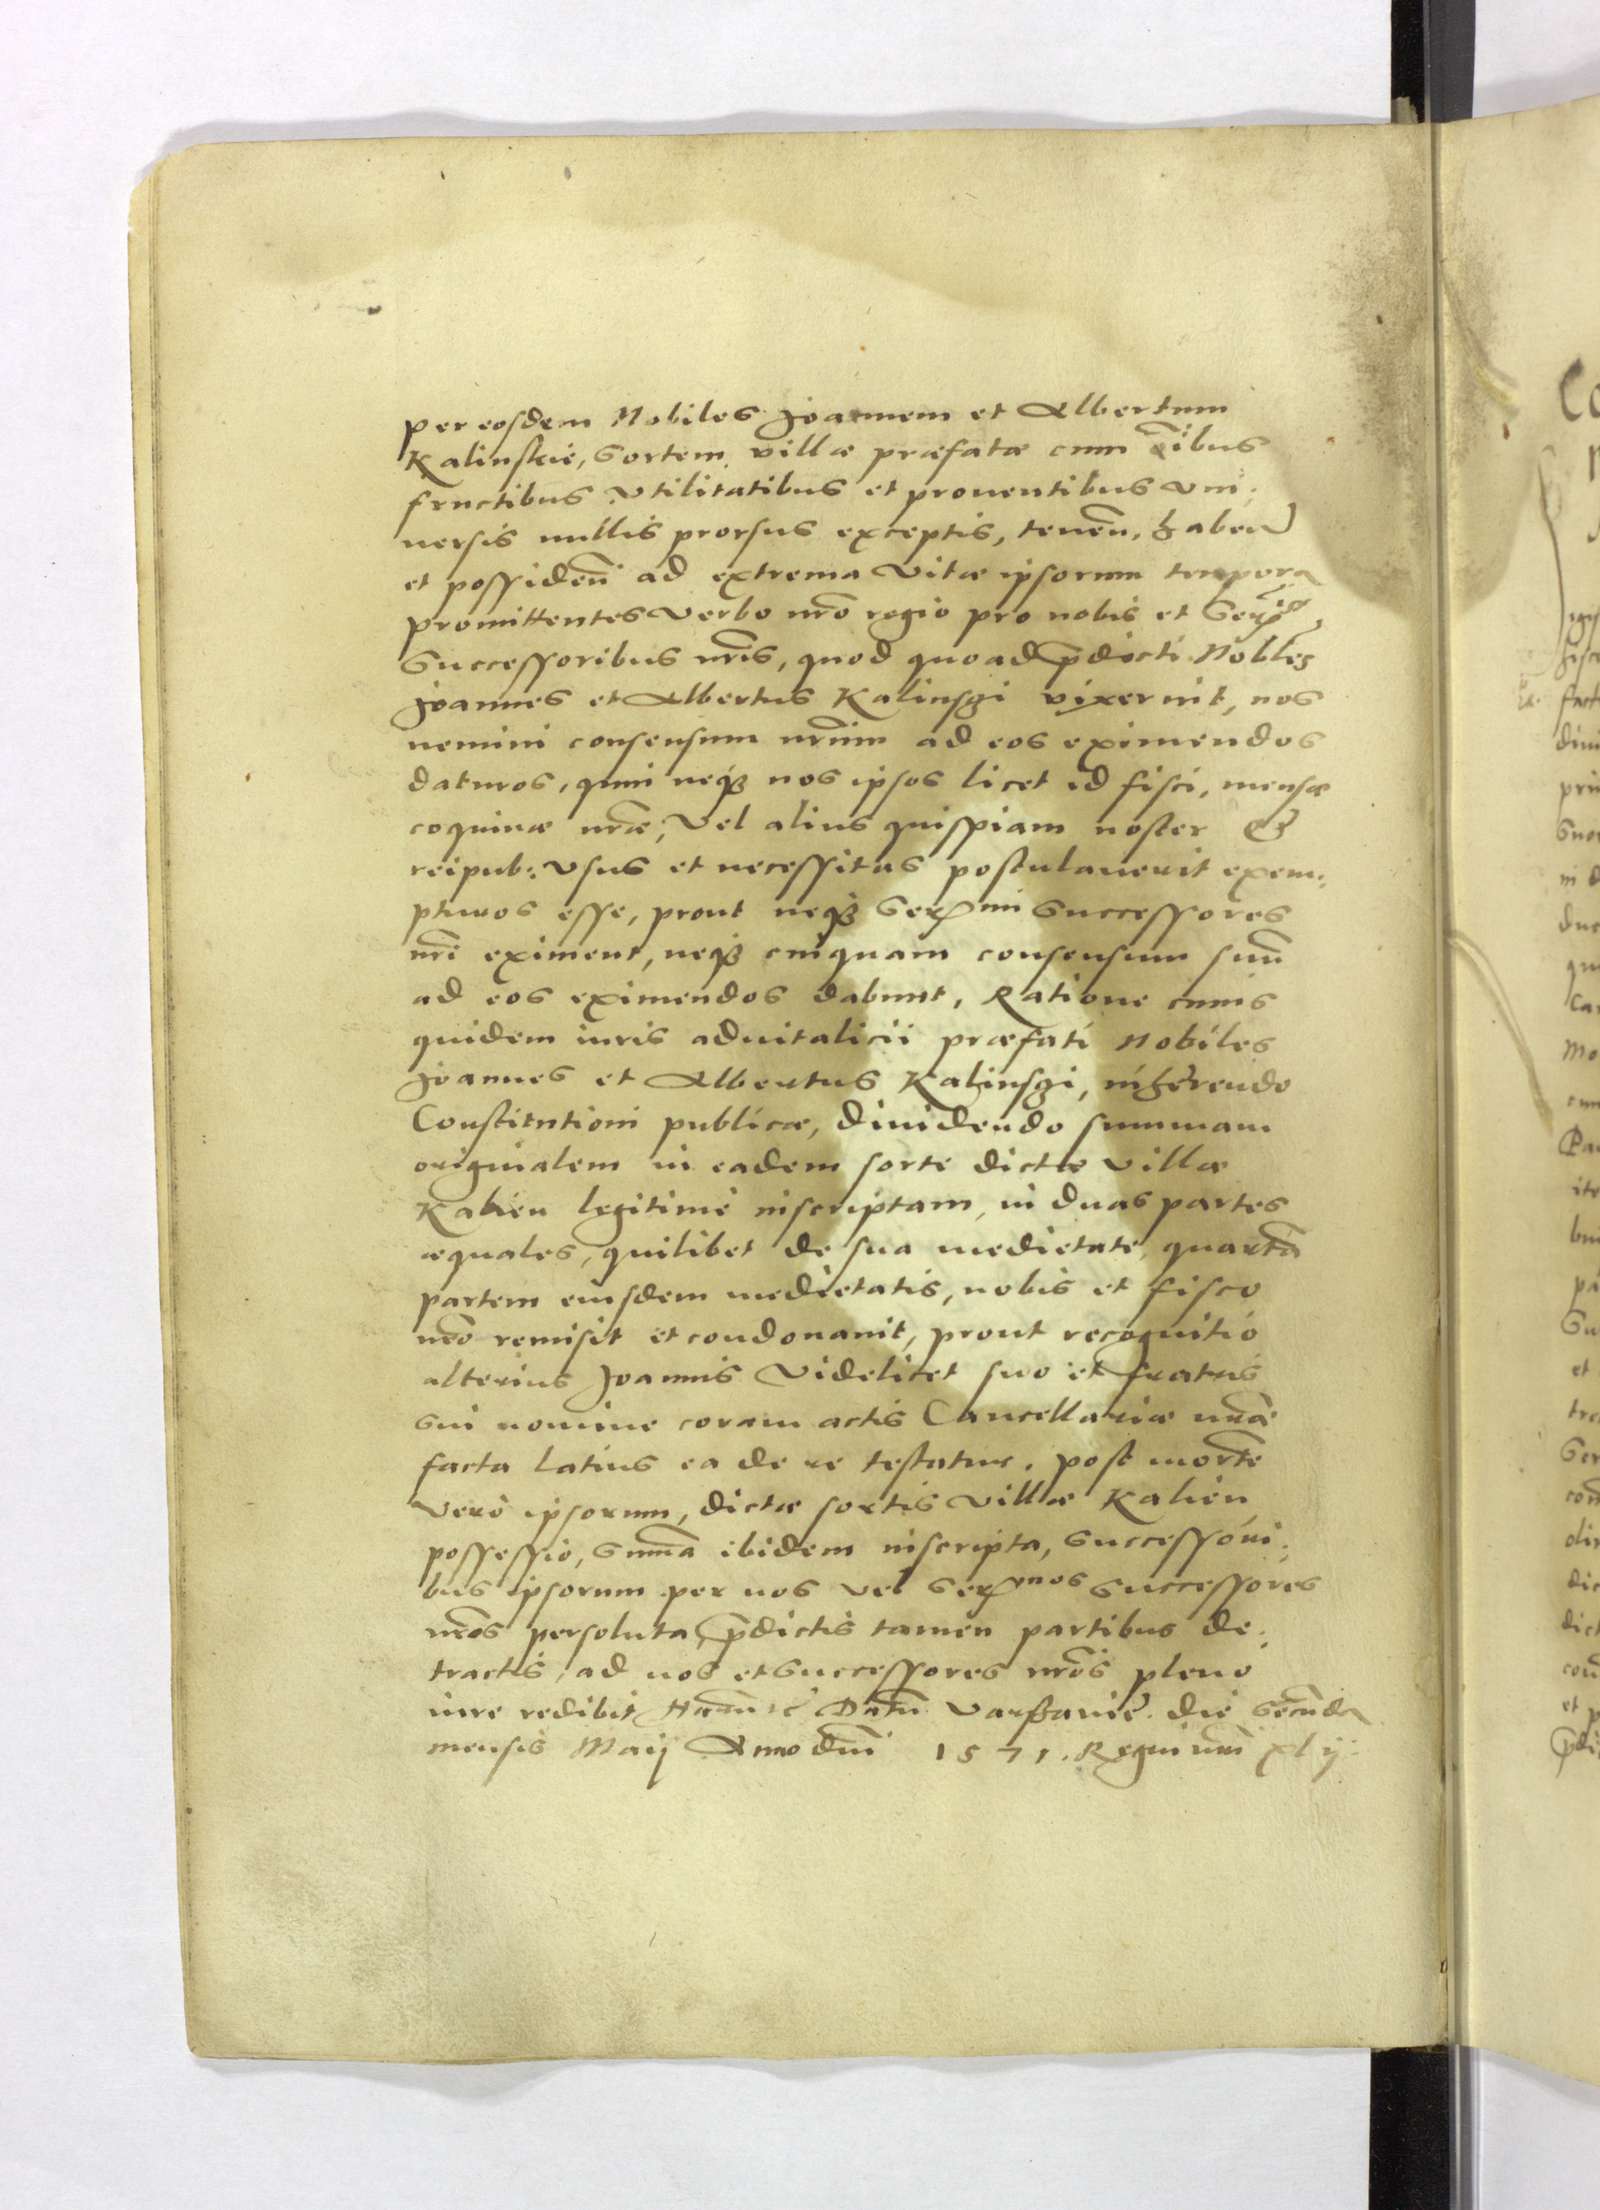 per eosdem Nobiles Joannem et Albertum
Kalinskie, Sortem villæ præfatæ cum oĩbus
fructibus vtilitatibus et prouentibus vni:
uersis nullis prorsus exceptis, teneñ, habeñ
et possideñ ad extrema vitæ ipsorum tempora
promittentes verbo nr̃o regio pro nobis et Ser
Successoribus nr̃is, quod quoad p̃dicti Nobles
Joannes et Albertus Kalinsgi vixerint, nos
nemini consensum nr̃um ad eos eximendos
daturos, quin neqʒ nos ipsos licet id fisci, mensæ
coquinæ nr̃æ, vel alius quispiam noster &
reipub: vsus et necessitas postulauerit exem:
pturos esse, prout neqʒ Sermi Successores
nr̃i eximent, neqʒ cuiquam consensum suũ
ad eos eximendos dabunt, Ratione cuius
quidem iuris aduitalicii præfati Nobiles
Joannes et Albertus Kalinsgi, inhærendo
Constitutioni publicæ, diuidendo summam
originalem in eadem sorte dictæ villæ
Kalień legitimè inscriptam, in duas partes
æquales, quilibet de sua medietate, quartã
partem eiusdem medietatis, nobis et fisco
nr̃o remisit et condonauit, prout recognitio
alterius Joannis videlicet suo et fratris
sui nomine coram actis Cancellariæ nr̃æ
facta latius ea de re testatur. post mortẽ
verò ipsorum, dictæ sortis villæ Kalień
possessio, sum̃a ibidem inscripta, successori:
bus ipsorum per nos vel Sermos Successores
nr̃os persoluta, p̃dictis tamen partibus de:
tractis, ad nos et Successores nr̃os pleno
iure redibit Datũ Varschauiæ die Secũda
mensis Maij Anno dñi 1571. Regni nr̃i xlij: